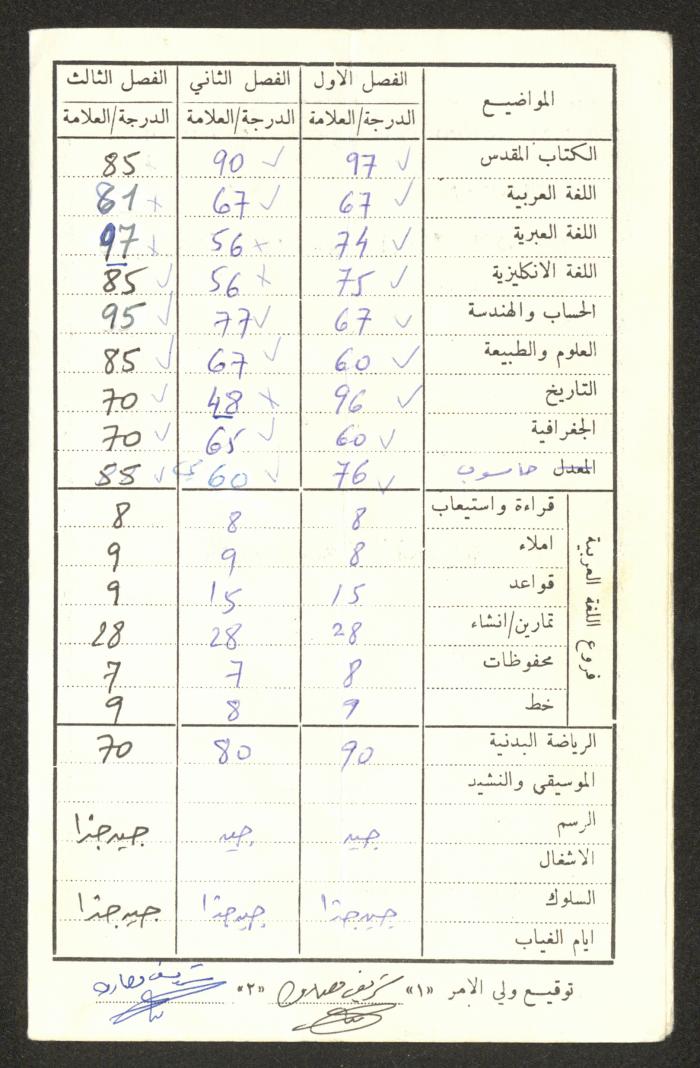 المواضيع الفصل الاول الفصل الثاني الفصل الثالث
الدرجة/العلامة الدرجة/العلامة الدرجة/العلامة
الكتاب المقدس 97 90 85
اللغة العربية 67 67 81
اللغة العبرية 74 56 97
اللغة الانكليزية 75 56 85
الحساب والهندسة 67 77 95
العلوم والطبيعة 60 67 85
التاريخ 96 48 70
الجغرافية 60 65 70
المعدل حاسوب 76 60 85
فروع اللغة العربية
قراءة واستيعاب 8 8 8
املاء 8 9 9
قواعد 15 15 9
تمارين/انشاء 28 28 28
محفوظات 8 7 7
خط 9 8 9
الرياضة البدنية 90 80 70
الموسيقى والنشيد
الرسم جيد جيد جيد جدًا
الاشغال
السلوك جيد جدًا جيد جدًا جيد جدًا
ايام الغياب
توقيع ولي الامر «١» شريف «٢» شريف